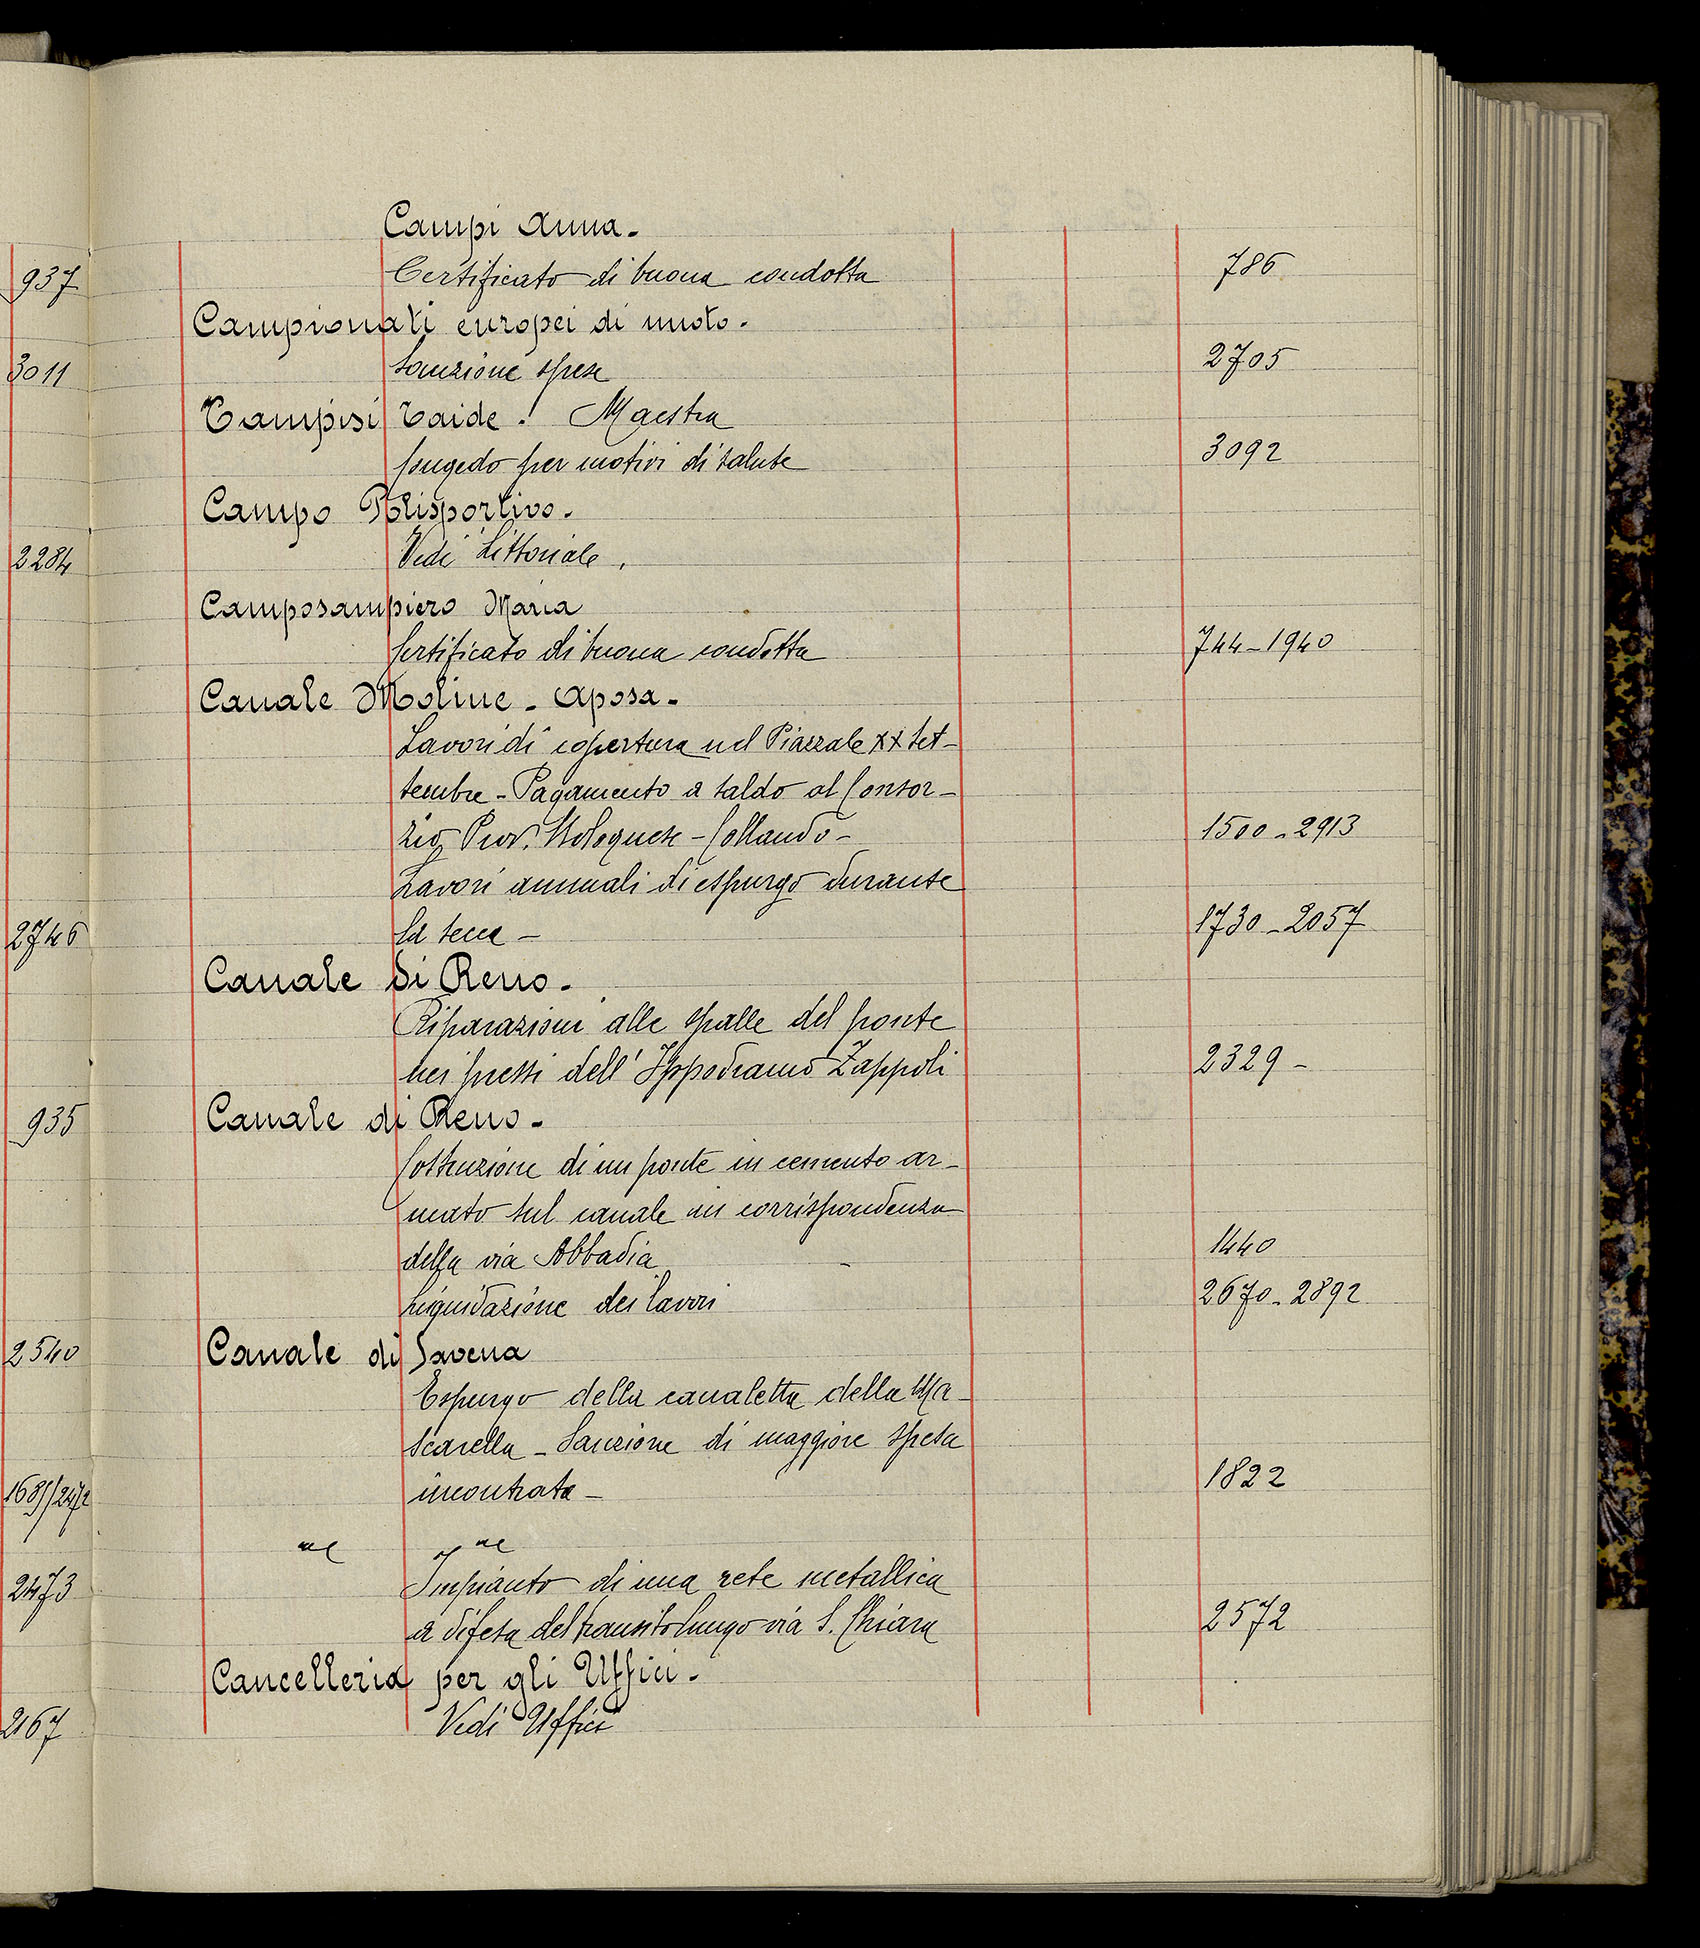 Campi Anna.
937
Certificato di buona condotta 786
Campionati europei di nuoto.
3011
Sanzione spese 2705
Campisi Taide. Maestra
Congedo per motivi di salute 3092
Campo Polisportivo.
2284
Vedi Littoriale.
Camposampiero Maria
Certificato di buona condotta 744-1940
Canale Moline - Aposa.
Lavori di copertura nel Piazzale XX Set-
tembre - Pagamento a saldo al Consor-
zio Prov. Bolognese - Collaudo - 1500-2913
Lavori annuali di espurgo durante
2746
la secca - 1730-2057
Canale di Reno.
Riparazioni alle spalle del ponte
nei pressi dell'Ippodromo Zappoli 2329-
935
Canale di Reno.
Costruzione di un ponte in cemento ar-
mato sul canale in corrispondenza
della via Abbadia 1440
Liquidazione dei lavori 2670-2892
2540
Canale di Savena
Espurgo della canaletta della Ma-
scarella - Sanzione di maggiore spesa
incontrata - 1822
2473
Impianto di una rete metallica
a difesa del transito lungo via S. Chiara 2572
Cancelleria per gli Uffici.
2167
Vedi Uffici